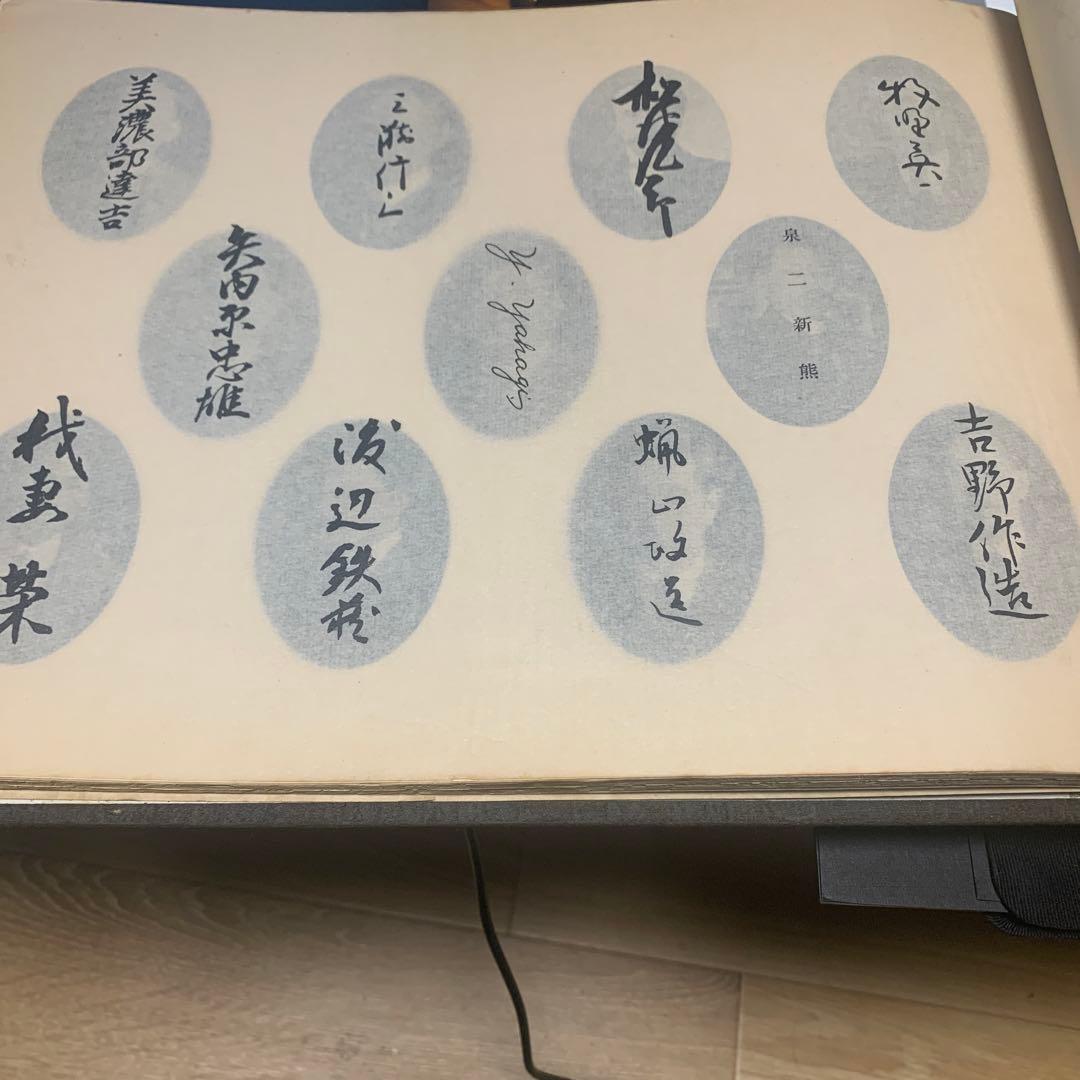 牧野英一
三潴信三
美濃部達吉
泉二新熊
Y. Yahagi
矢内原忠雄
吉野作造
蝋山政道
渡辺鉄蔵
我妻榮